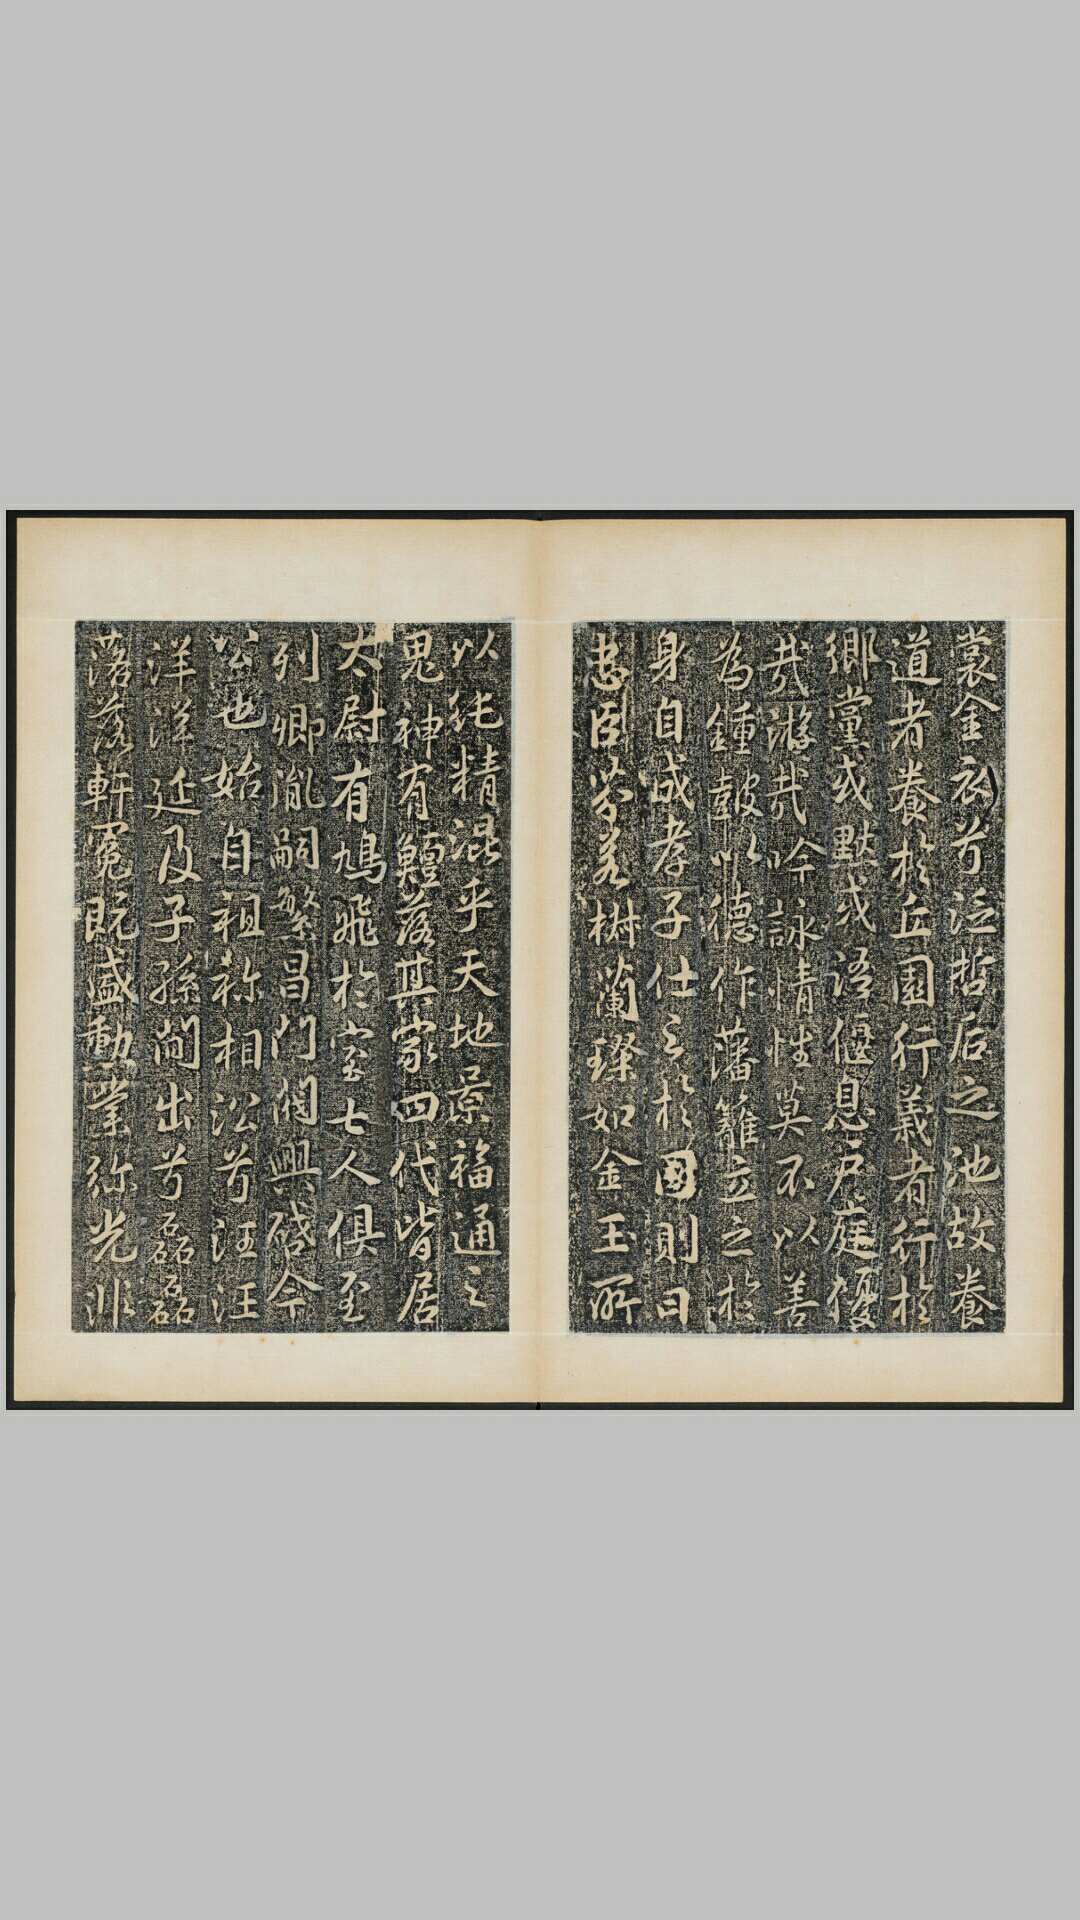 裳金衣兮泛哲后之池故養
道者養於丘園行義者行於
鄉黨或默或語偃息戶庭優
哉游哉吟詠情性莫不以善
為鍾皷以德作藩籬立之於
身自成孝子仕之於國則曰
忠臣芬若樹蘭璨如金玉所
以純精混乎天地景福通之
鬼神有鱣落其家四代皆居
太尉有鳩飛於室七人俱至
列卿胤嗣繁昌門閥興啓今
公也始自祖称相沿兮汪汪
洋洋延及子孫間出兮磊磊
落落軒冕既盛勳業弥光非